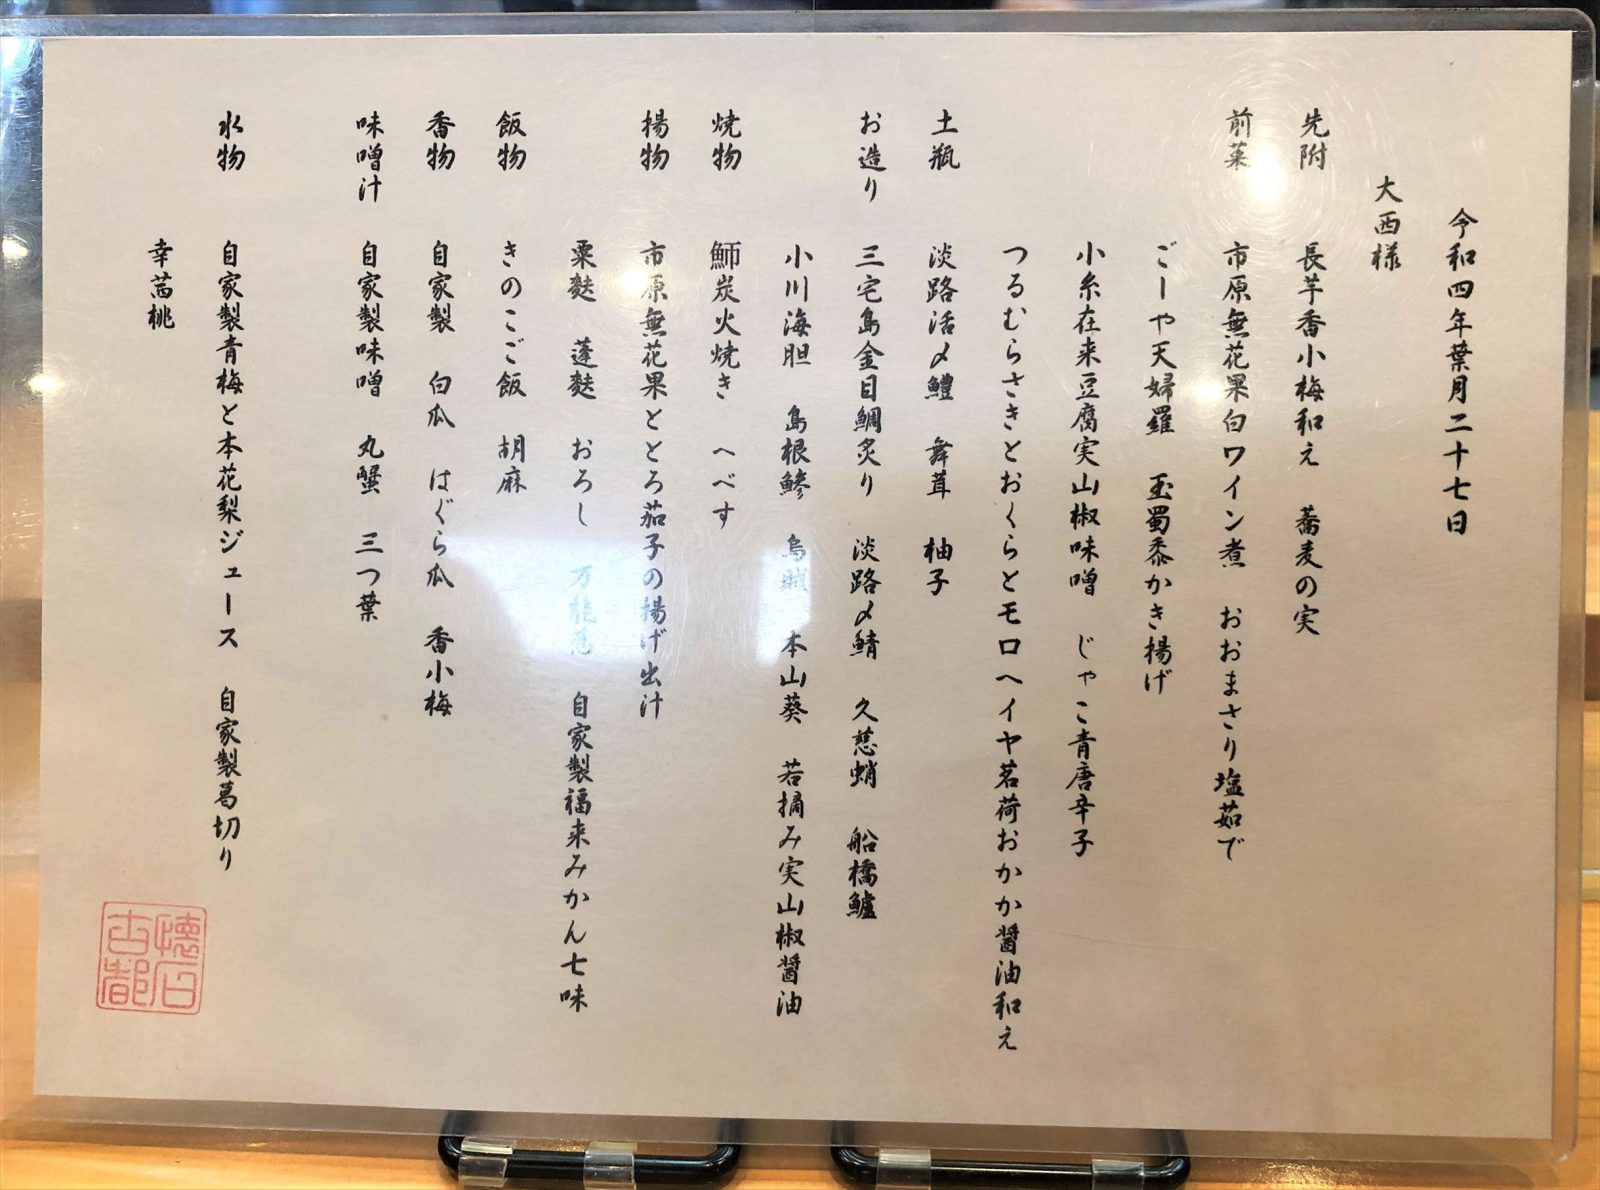 令和四年葉月二十七日
大西様
先附　長芋香小梅和え　蕎麦の実
前菜　市原無花果白ワイン煮　おおまさり塩茹で
ごーや天婦羅　玉蜀黍かき揚げ
小糸在来豆腐実山椒味噌　じゃこ青唐辛子
つるむらさきとおくらとモロヘイヤ茗荷おかか醤油和え
土瓶　淡路活〆鱧　舞茸　柚子
お造り　三宅島金目鯛炙り　淡路〆鯖　久慈蛸　船橋鱸
小川海胆　島根鯵　烏賊　本山葵　若摘み実山椒醤油
焼物　鰤炭火焼き　へべす
揚物　市原無花果ととろ茄子の揚げ出汁
粟麩　蓬麩　おろし　万能葱　自家製福来みかん七味
飯物　きのこご飯　胡麻
香物　自家製　白瓜　はぐら瓜　香小梅
味噌汁　自家製味噌　丸蟹　三つ葉
水物　自家製青梅と本花梨ジュース　自家製葛切り
幸茜桃
懐石
古都